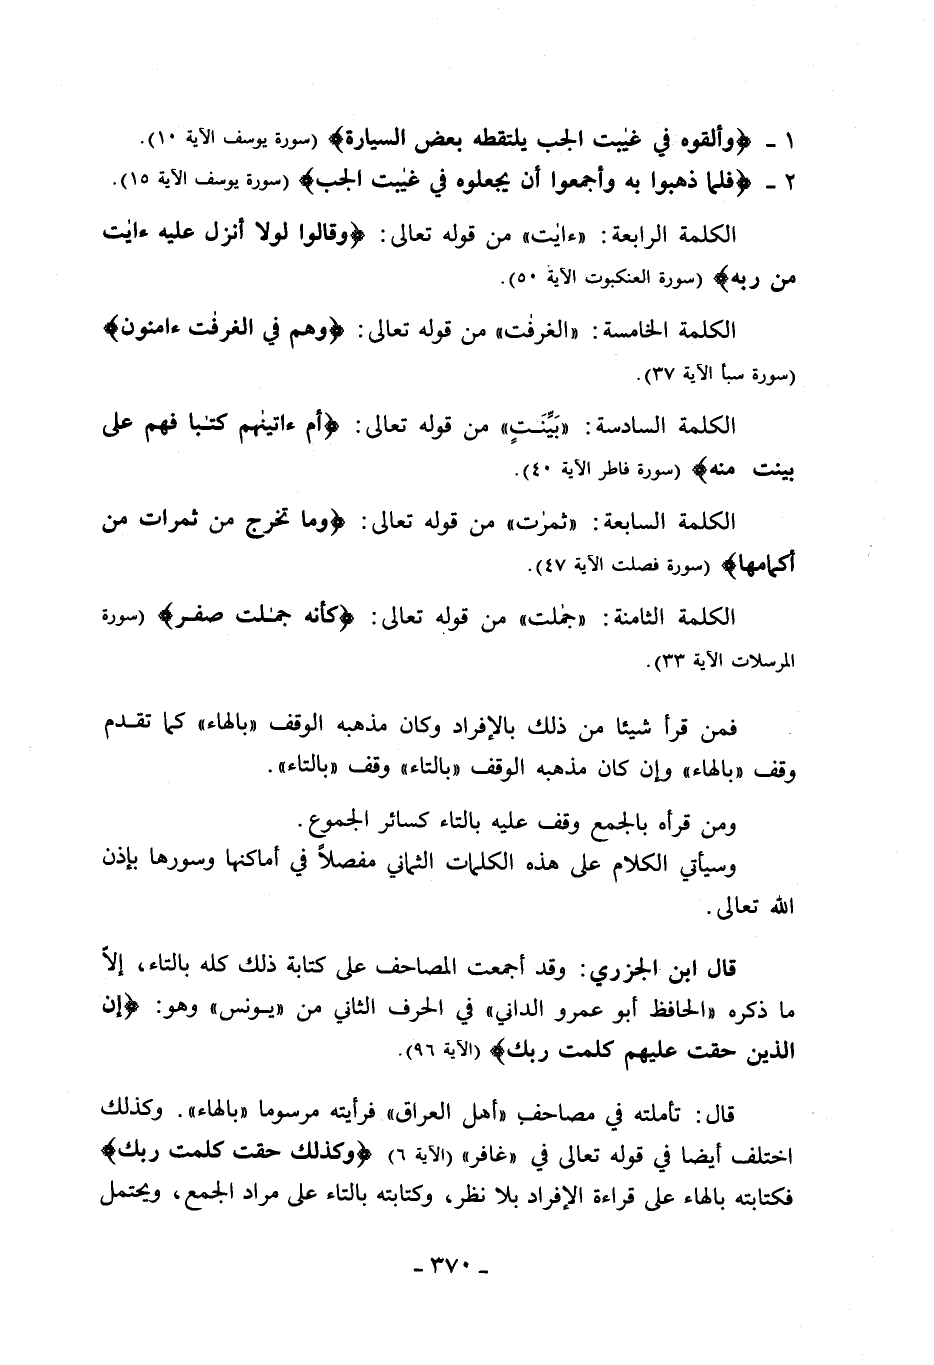 ١ - ﴿وألقوه في غيٰبت الجب يلتقطه بعض السيارة﴾ (سورة يوسف الآية ١٠).
٢ - ﴿فلما ذهبوا به وأجمعوا أن يجعلوه في غيٰبت الجب﴾ (سورة يوسف الآية ١٥).
الكلمة الرابعة: «ءايٰت» من قوله تعالى: ﴿وقالوا لولا أنزل عليه ءايٰت
من ربه﴾ (سورة العنكبوت الآية ٥٠).
الكلمة الخامسة: «الغرفٰت» من قوله تعالى: ﴿وهم في الغرفٰت ءامنون﴾
(سورة سبأ الآية ٣٧).
الكلمة السادسة: «بَيِّنَـتٍ» من قوله تعالى: ﴿أم ءاتينٰهم كتٰبا فهم على
بينت منه﴾ (سورة فاطر الآية ٤٠).
الكلمة السابعة: «ثمرٰت» من قوله تعالى: ﴿وما تخرج من ثمرات من
أكمامها﴾ (سورة فصلت الآية ٤٧).
الكلمة الثامنة: «جمٰلت» من قوله تعالى: ﴿كأنه جمٰلت صفر﴾ (سورة
المرسلات الآية ٣٣).
فمن قرأ شيئا من ذلك بالإفراد وكان مذهبه الوقف «بالهاء» كما تقدم
وقف «بالهاء» وإن كان مذهبه الوقف «بالتاء» وقف «بالتاء».
ومن قرأه بالجمع وقف عليه بالتاء كسائر الجموع.
وسيأتي الكلام على هذه الكلمات الثماني مفصلاً في أماكنها وسورها بإذن
الله تعالى.
قال ابن الجزري: وقد أجمعت المصاحف على كتابة ذلك كله بالتاء، إلاّ
ما ذكره «الحافظ أبو عمرو الداني» في الحرف الثاني من «يونس» وهو: ﴿إن
الذين حقت عليهم كلمت ربك﴾ (الآية ٩٦).
قال: تأملته في مصاحف «أهل العراق» فرأيته مرسوما «بالهاء». وكذلك
اختلف أيضا في قوله تعالى في «غافر» (الآية ٦) ﴿وكذلك حقت كلمت ربك﴾
فكتابته بالهاء على قراءة الإفراد بلا نظر، وكتابته بالتاء على مراد الجمع، ويحتمل
- ٣٧٠ -